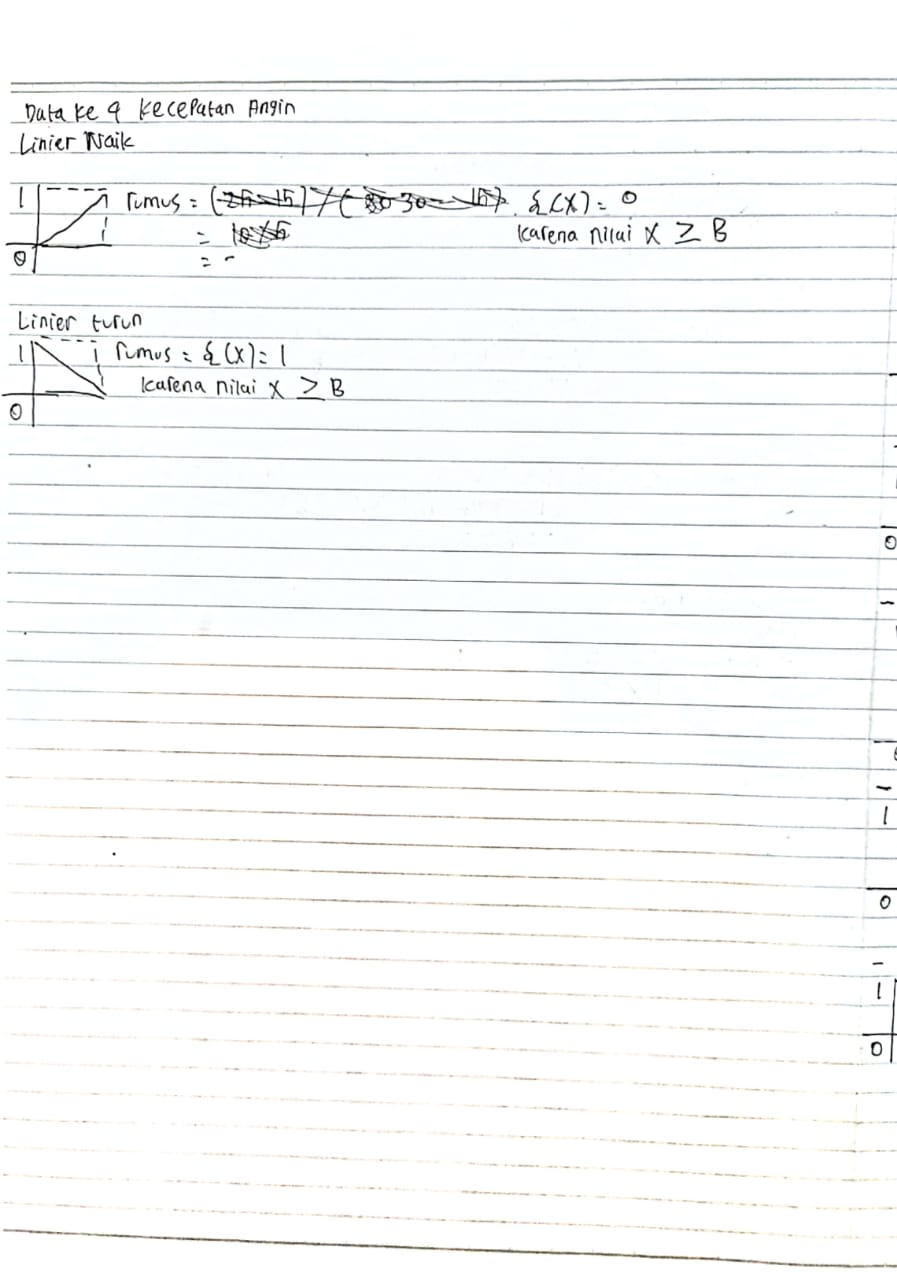 Data ke 9 kecepatan Angin
Linier Naik
1 rumus = (25-15) / (30-15) f(x) = 0
= karena nilai x ≥ B
0 = -
Linier turun
1 rumus = f(x) = 1
karena nilai x ≥ B
0
0
1
0
1
0